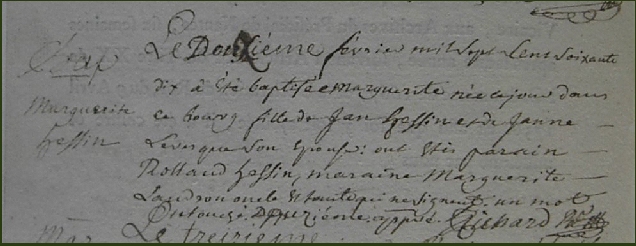 Le Douzieme fevrier mil sept Cent soixante
dix a été baptisée marguerite née ce jour dans
Marguerite
ce bourg fille de Jan hessin et de Janne
hessin
Levesque Son epouse: ont etés parain
Rolland hessin, maraine Marguerite
Landron oncle & tante qui ne signent, un mot
approuvé Richard
Le treizieme